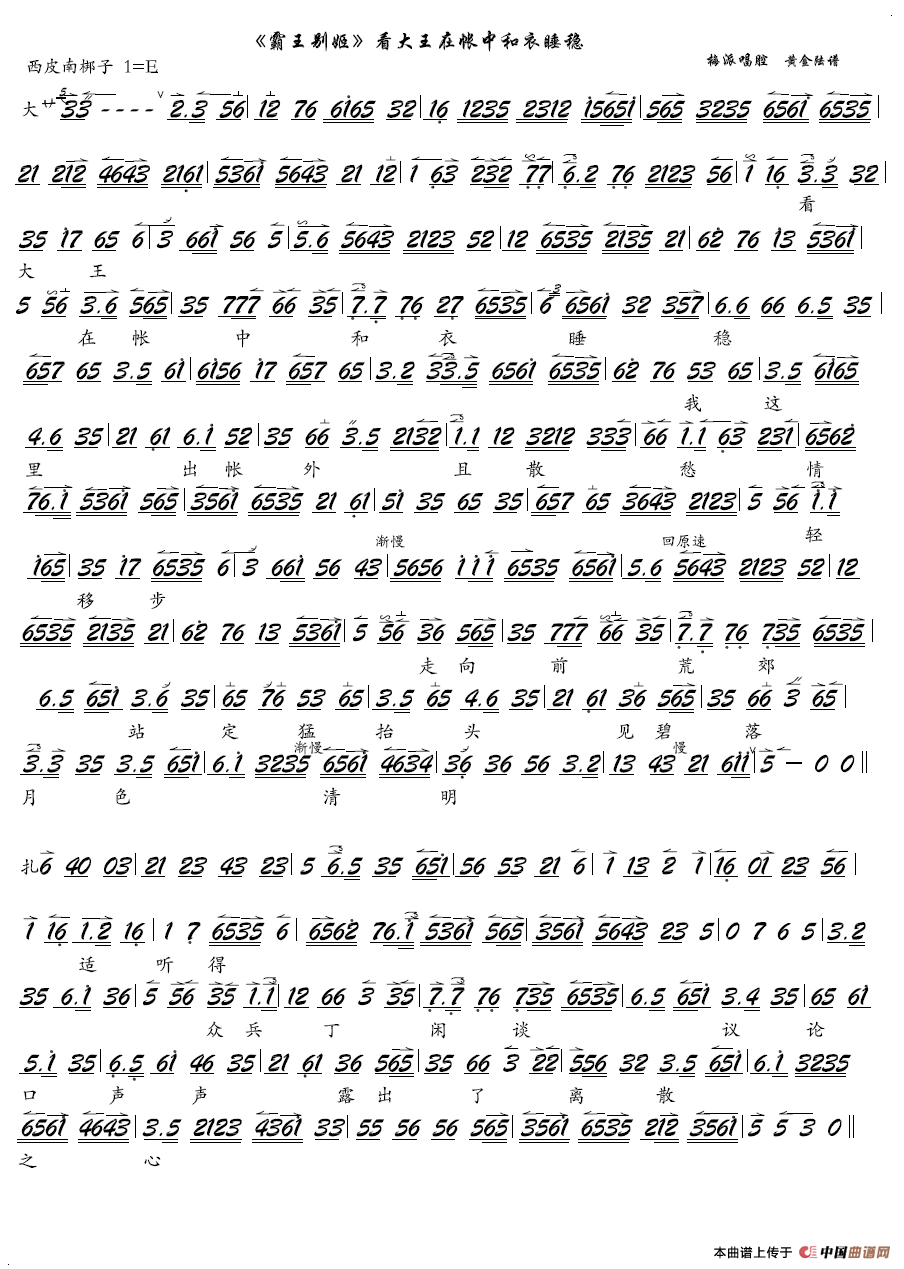 《霸王别姬》看大王在帐中和衣睡稳
西皮南梆子 1=E
梅派唱腔 黄金陆谱
大 33 - - - - 2.3 56 | 12 76 6165 32 | 16 1235 2312 15651 | 565 3235 6561 6535 |
21 212 4643 2161 | 5361 5643 21 12 | 1 63 232 77 | 6.2 76 2123 56 | 1 16 3.3 32 |
看
35 17 65 6 | 3 661 56 5 | 5.6 5643 2123 52 | 12 6535 2135 21 | 62 76 13 5361 |
大 王
5 56 3.6 565 | 35 777 66 35 | 7.7 76 27 6535 | 6 6561 32 357 | 6.6 66 6.5 35 |
在 帐 中 和 衣 睡 稳
657 65 3.5 61 | 6156 17 657 65 | 3.2 33.5 6561 6535 | 62 76 53 65 | 3.5 6165
我 这
4.6 35 | 21 61 6.1 52 | 35 66 3.5 2132 | 1.1 12 3212 333 | 66 1.1 63 231 | 6562
里 出 帐 外 且 散 愁 情
76.1 5361 565 | 3561 6535 21 61 | 51 35 65 35 | 657 65 3643 2123 | 5 56 1.1
轻
渐慢 回原速
165 | 35 17 6535 6 | 3 661 56 43 | 5656 111 6535 6561 | 5.6 5643 2123 52 | 12
移 步
6535 2135 21 | 62 76 13 5361 | 5 56 36 565 | 35 777 66 35 | 7.7 76 735 6535 |
走 向 前 荒 郊
6.5 651 3.6 35 | 65 76 53 65 | 3.5 65 4.6 35 | 21 61 36 565 | 35 66 3 65 |
站 定 猛 抬 头 见 碧 落
渐慢 慢
3.3 35 3.5 651 | 6.1 3235 6561 4634 | 36 36 56 3.2 | 13 43 21 611 | 5 - 0 0 ‖
月 色 清 明
扎 6 40 03 | 21 23 43 23 | 5 6.5 35 651 | 56 53 21 6 | 1 13 2 1 | 16 01 23 56 |
1 16 1.2 16 | 1 7 6535 6 | 6562 76.1 5361 565 | 3561 5643 23 5 | 0 7 6 5 | 3.2
适 听 得
35 6.1 36 | 5 56 35 1.1 | 12 66 3 35 | 7.7 76 735 6535 | 6.5 651 3.4 35 | 65 61
众 兵 丁 闲 谈 议 论
5.1 35 | 6.5 61 46 35 | 21 61 36 565 | 35 66 3 22 | 556 32 3.5 651 | 6.1 3235
口 声 声 露 出 了 离 散
6561 4643 | 3.5 2123 4361 33 | 55 56 56 565 | 3561 6535 212 3561 | 5 5 3 0 ‖
之 心
本曲谱上传于 中国曲谱网